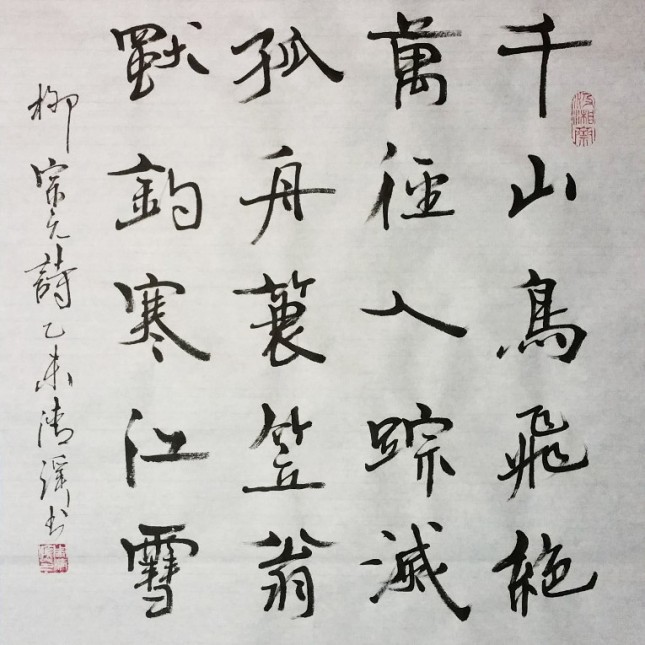 千山鳥飛絶
萬徑人踪滅
孤舟蓑笠翁
獨釣寒江雪
柳宗元詩乙未清溪书